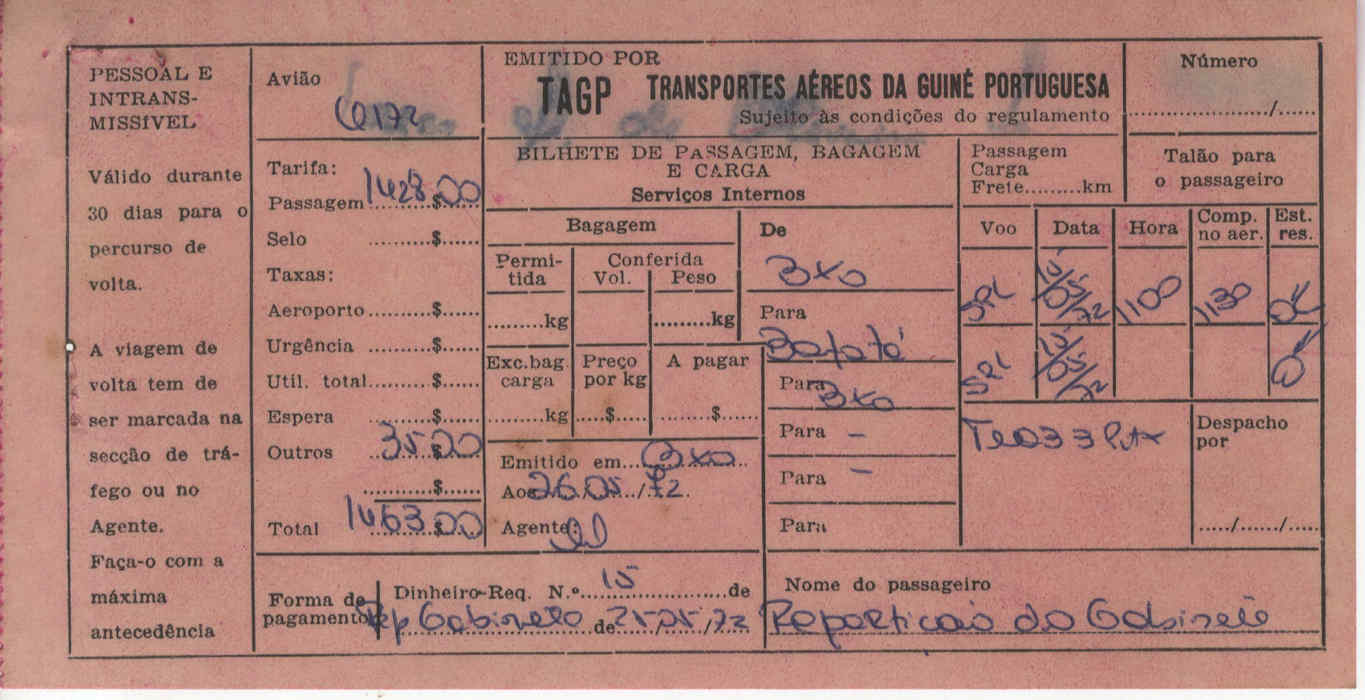 PESSOAL E
INTRANS-
MISSÍVEL
Válido durante
30 dias para o
percurso de
volta.
A viagem de
volta tem de
ser marcada na
secção de trá-
fego ou no
Agente.
Faça-o com a
máxima
antecedência
Avião
C172
Tarifa:
Passagem 1428$00
Selo .........$......
Taxas:
Aeroporto .........$......
Urgência .........$......
Util. total .........$......
Espera .........$......
Outros 35$00
.........$......
Total 1463$00
EMITIDO POR
TAGP TRANSPORTES AÉREOS DA GUINÉ PORTUGUESA
Sujeito às condições do regulamento
BILHETE DE PASSAGEM, BAGAGEM
E CARGA
Serviços Internos
Bagagem
Permi-
tida
Conferida
Vol. Peso
.........kg .........kg
Exc.bag.
carga
Preço
por kg
A pagar
.........kg ....$..... .......$......
Emitido em Bxo
Aos 26/05/72.
Agente:
De
Bxo
Para
Bafatá
Para
Bxo
Para –
Para –
Para
Passagem
Carga
Frete.........km
Número
....................../......
Talão para
o passageiro
Voo Data Hora Comp.
no aer. Est.
res.
SPL 1100 1130 OK
SPL
Despacho
por
...../....../.....
Forma de
pagamento
Dinheiro-Req. N.º 15 de
Rep Gabinete de 25/05/72
Nome do passageiro
Reparticao do Gabinete